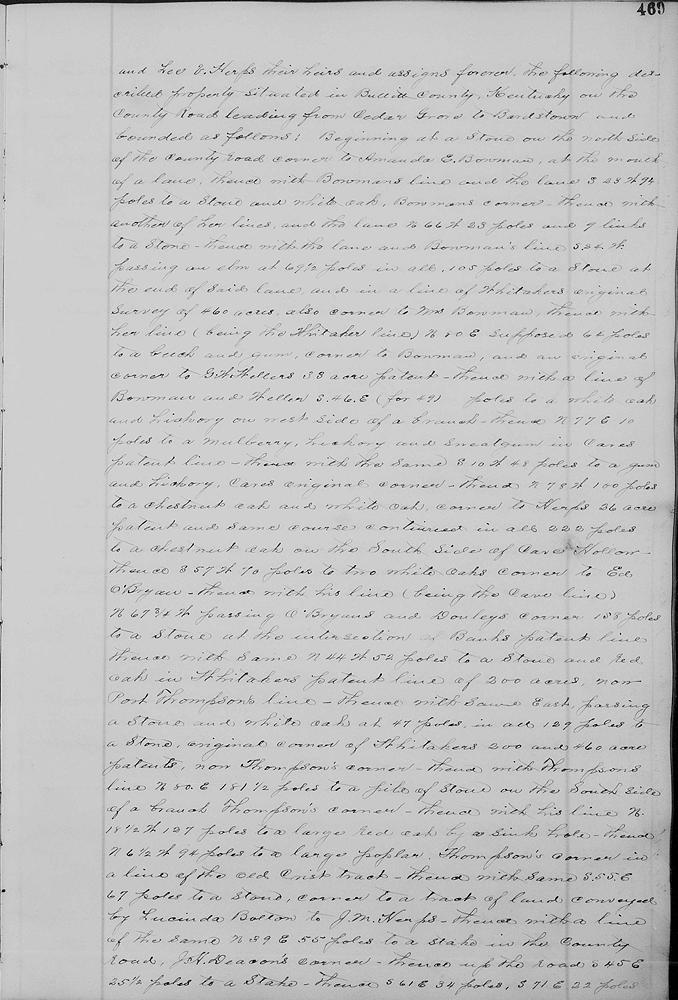 469
and Lee E. Herps their heirs and assigns forever, the following des-
cribed property situated in Bullitt County, Kentucky on the
County Road leading from Cedar Grove to Bardstown and
bounded as follows: Beginning at a Stone on the north Side
of the County road corner to Amanda E. Bowman, at the mouth
of a lane, thence with Bowmans line and the lane S 23 W 94
poles to a Stone and white oak, Bowmans corner - thence with
another of her lines, and the lane N 66 W 23 poles and 9 links
to a Stone - thence with the lane and Bowman's line S 24. W.
passing an elm at 69 1/2 poles in all, 105 poles to a Stone at
the end of said lane, and in a line of Whitakers original
Survey of 460 acres, also corner to Mrs Bowman, thence with
her line (being the Whitaker line) N 80 E supposed 64 poles
to a beech and gum, corner to Bowman, and an original
corner to G.W. Wellers 33 acre patent - thence with a line of
Bowman and Weller S. 46. E (for 49) poles to a white oak
and hickory on west side of a branch - thence N 77 E 10
poles to a mulberry, hickory and sweetgum in Cares
patent line - thence with the same S 10 W 48 poles to a gum
and hickory, Cares original corner - thence N 78 W 100 poles
to a chestnut oak and white oak, corner to Herps 36 acre
patent and same course continued in all 222 poles
to a chestnut oak on the South Side of Cave Hollow -
thence S 57 W 70 poles to two white oaks corner to Ed
O'Bryan - thence with his line (being the Cave line)
N 67 3/4 W passing O'Bryans and Donleys corner 188 poles
to a Stone at the intersection of Banks patent line
thence with Same N 44 W 52 poles to a Stone and red
oak in Whitakers patent line of 200 acres, now
Port Thompson's line - thence with Same East, passing
a Stone and white oak at 47 poles, in all 129 poles to
a Stone, original corner of Whitakers 200 and 460 acre
patents, now Thompson's corner - thence with Thompsons
line N 80. E 181 1/2 poles to a pile of Stone on the South Side
of a branch Thompson's corner - thence with his line N.
18 1/2 W 127 poles to a large red oak by a Sink hole - thence
N 6 1/2 W 94 poles to a large poplar, Thompson's corner in
a line of the old Crist tract - thence with Same S. 55. E
67 poles to a Stone, corner to a tract of land conveyed
by Lucinda Bolton to J.M. Herps - thence with a line
of the Same N 39 E 55 poles to a stake in the County
Road, J.H. Deacon's corner - thence up the road S 45 E
25 1/2 poles to a Stake - thence S 61 E 34 poles, S 71 E 22 poles